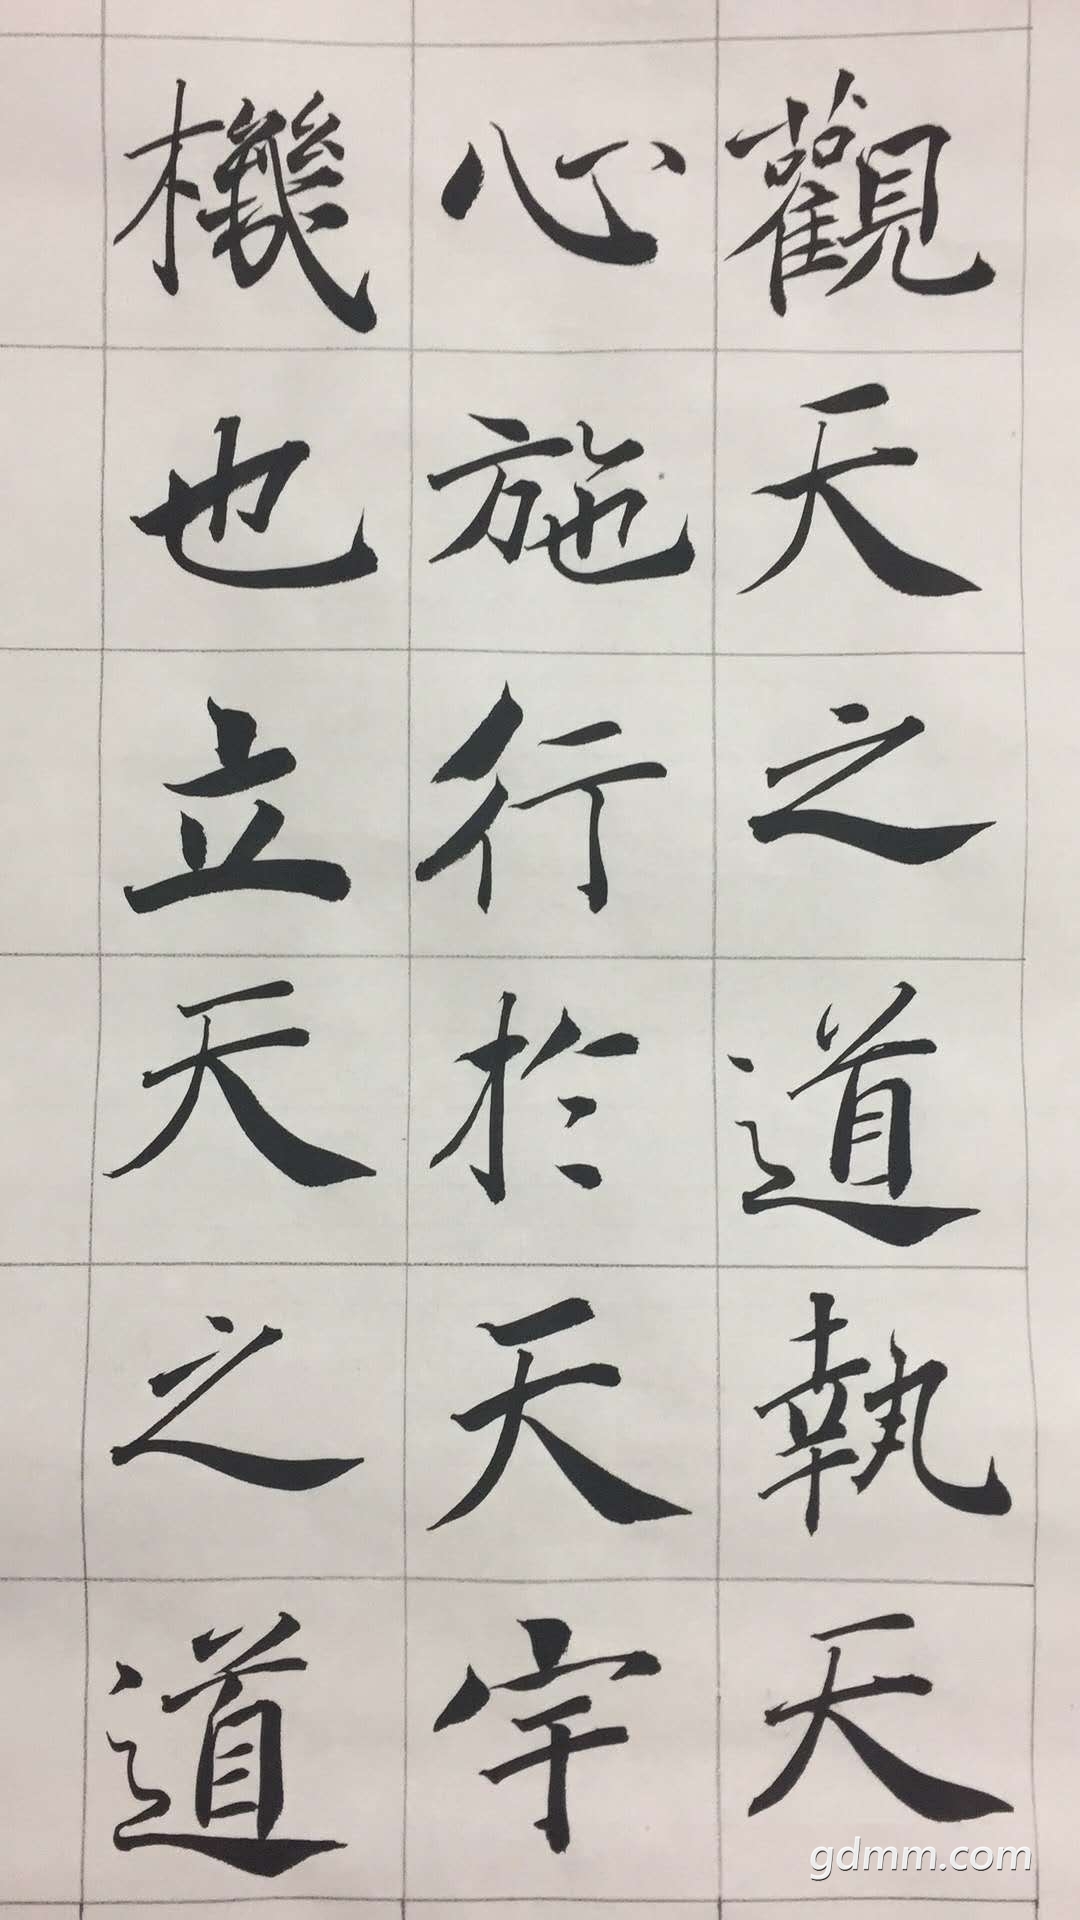 觀天之道執天
心施行於天宇
機也立天之道
gdmm.com